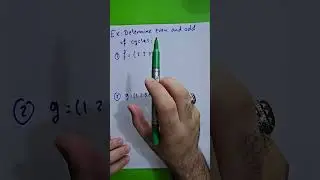 Ex: Determine even and odd
of cycles:
① f = (1 2 3
② g = (1 2 3
② g = (1 2